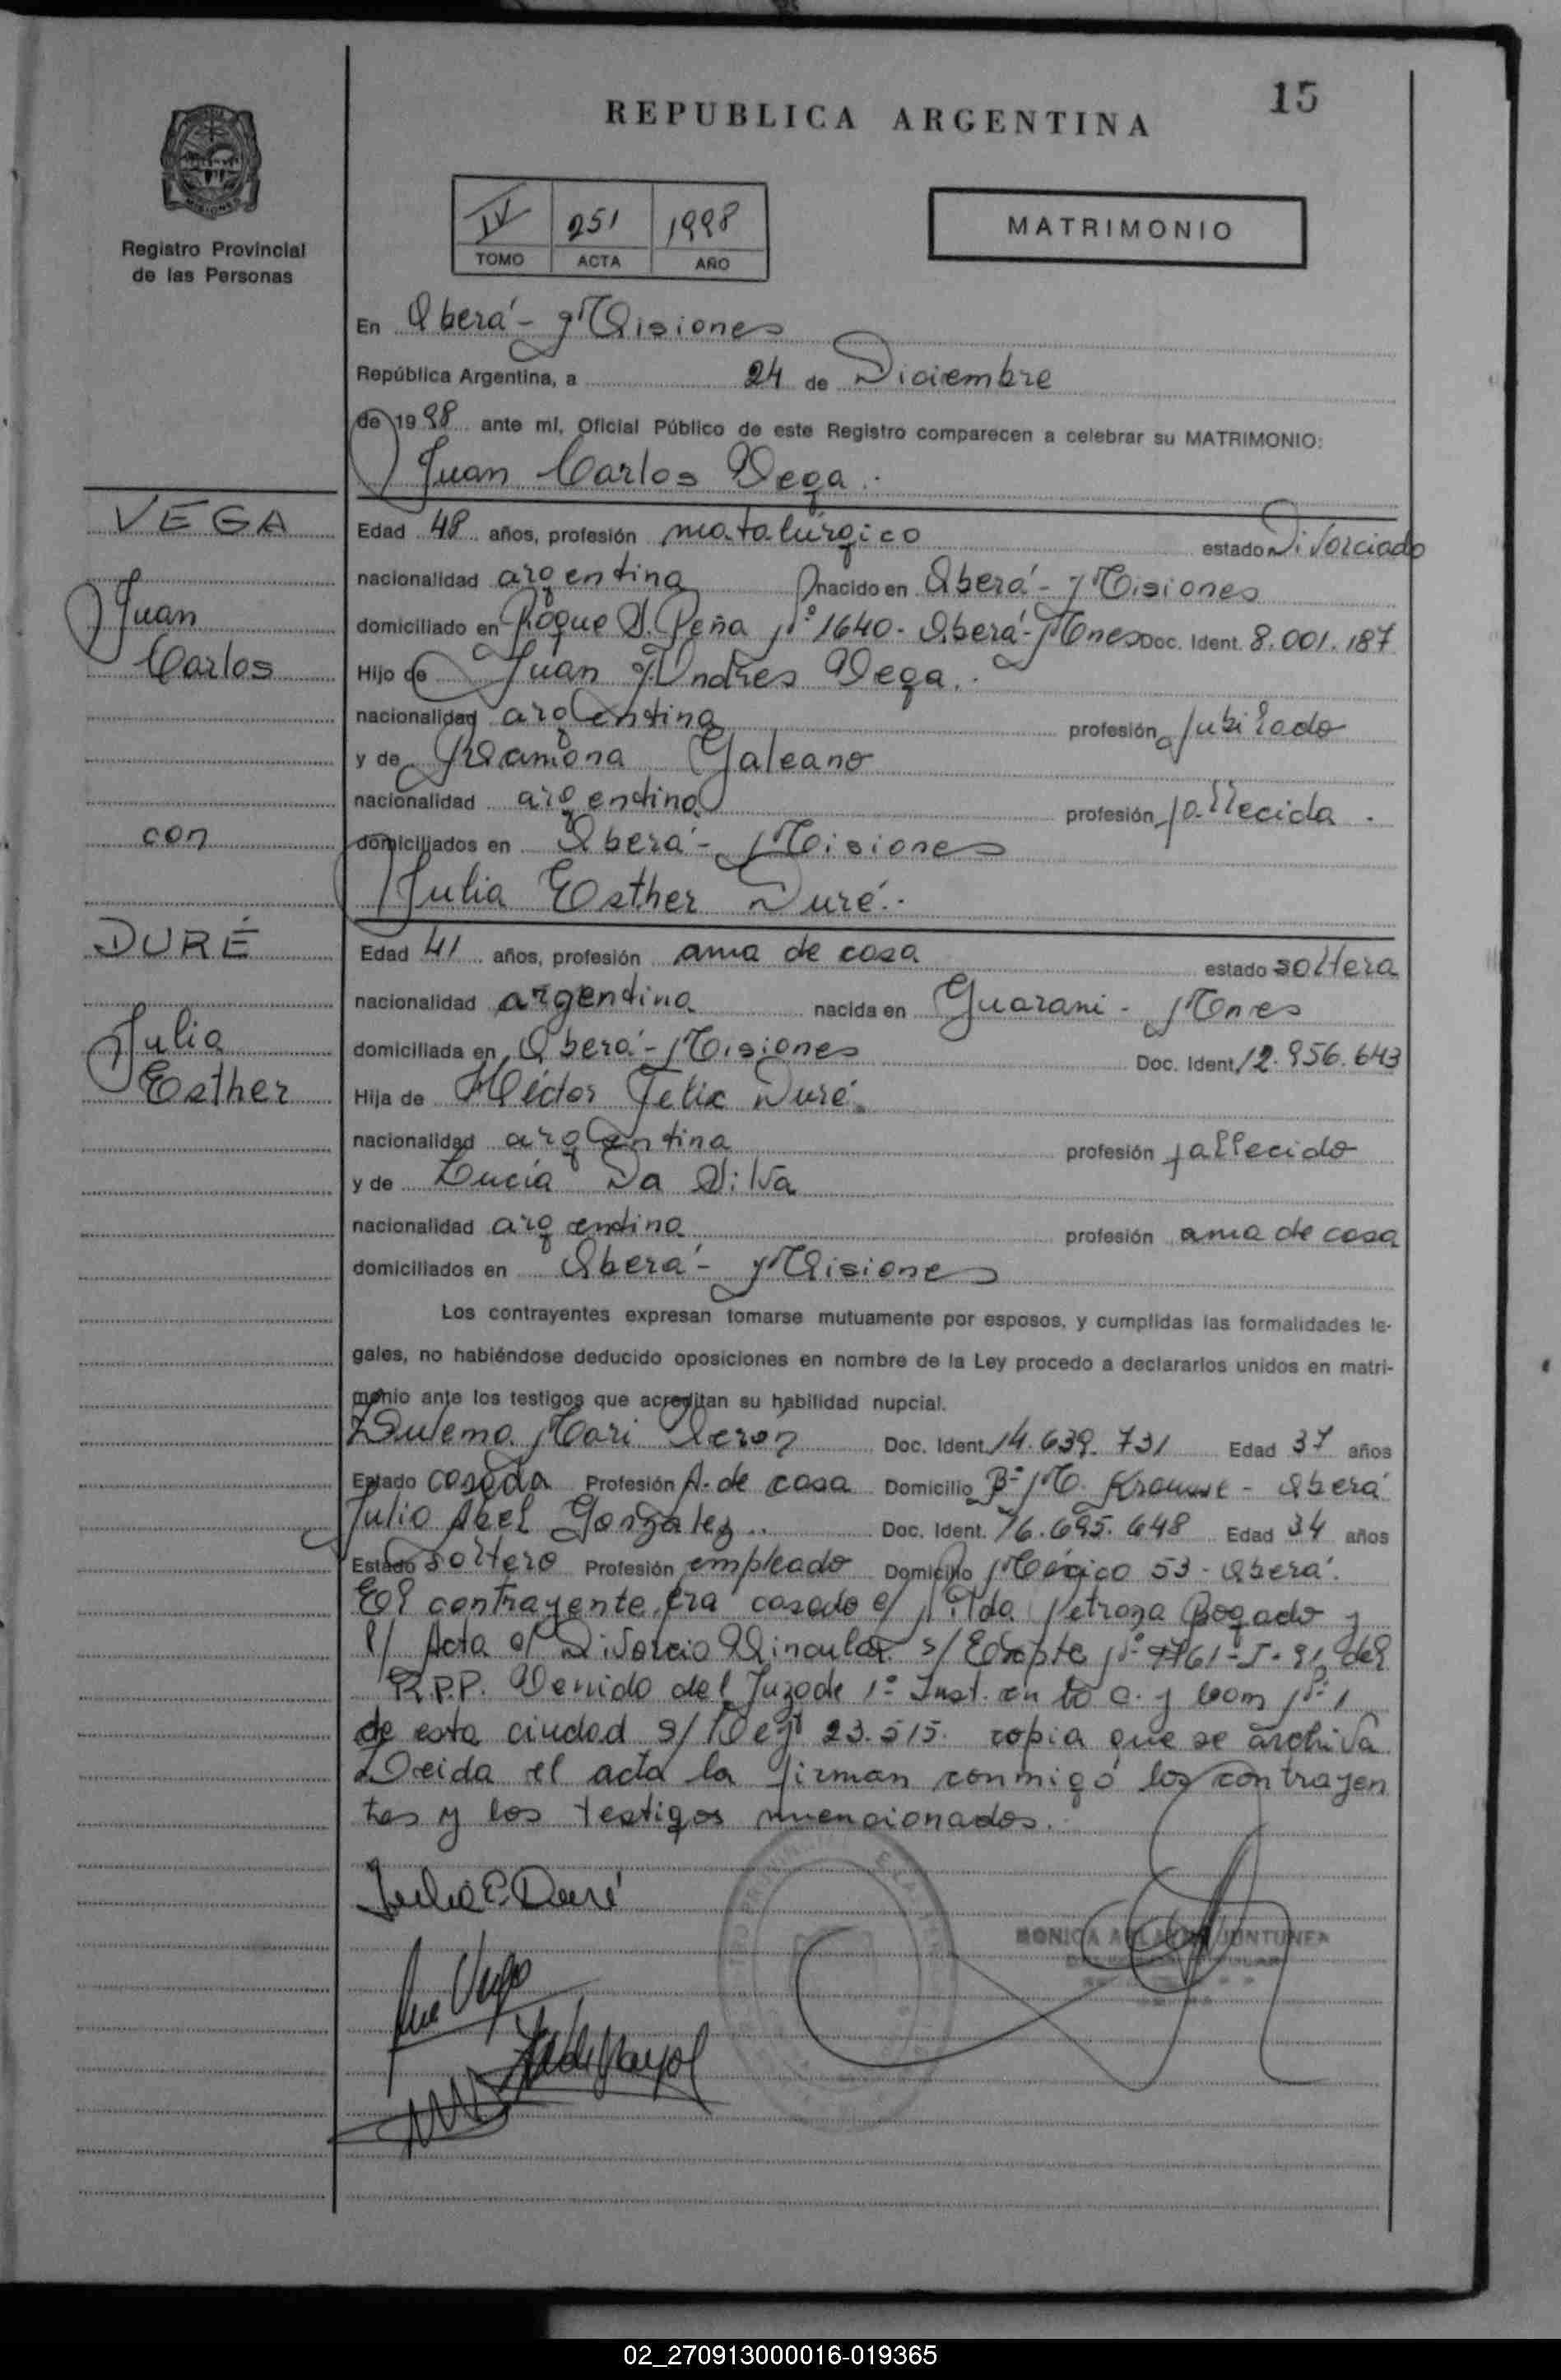 15
REPUBLICA ARGENTINA
MISIONES
Registro Provincial
de las Personas
IV 251 1998
TOMO ACTA AÑO
MATRIMONIO
En Oberá - Misiones
República Argentina, a 24 de Diciembre
de 1998 ante mí, Oficial Público de este Registro comparecen a celebrar su MATRIMONIO:
Juan Carlos Vega.
VEGA
Juan
Carlos
con
DURÉ
Julia
Esther
Edad 48 años, profesión matalúrgico estado Divorciado
nacionalidad argentina nacido en Oberá - Misiones
domiciliado en Roque S. Peña Nº 1640 - Oberá - Mnes Doc. Ident. 8.001.187
Hijo de Juan Andres Vega.
nacionalidad argentina profesión Jubilado
y de Ramona Galeano
nacionalidad argentina profesión fallecida.
domiciliados en Oberá - Misiones
Julia Esther Duré.
Edad 41 años, profesión ama de casa estado soltera
nacionalidad argentina nacida en Guarani - Mnes
domiciliada en Oberá - Misiones Doc. Ident. 12.956.643
Hija de Héctor Felix Duré.
nacionalidad argentina profesión fallecido
y de Lucía Da Silva
nacionalidad argentina profesión ama de casa
domiciliados en Oberá - Misiones
Los contrayentes expresan tomarse mutuamente por esposos, y cumplidas las formalidades le-
gales, no habiéndose deducido oposiciones en nombre de la Ley procedo a declararlos unidos en matri-
monio ante los testigos que acreditan su habilidad nupcial.
Zulema Mari Doc. Ident. 14.639.731 Edad 37 años
Estado casada Profesión A. de casa Domicilio Bº M. Krausse - Oberá
Julio Abel Gonzalez.. Doc. Ident. 16.695.648 Edad 34 años
Estado soltero Profesión empleado Domicilio México 53 - Oberá.
El contrayente era casado c/ Nilda Petrona Bogado y
p/ Acta d/ Divorcio Vincular s/ Expte Nº 9761-J-91 del
R.P.P. Venido del Juzg de 1º Inst. en lo C. y Com Nº 1
de esta ciudad s/ Leg 23.515. copia que se archiva
Leida el acta la firman conmigo los contrayen
tes y los testigos mencionados.
Julia E. Duré
Vega
MONICA JONTUNEA
02_270913000016-019365